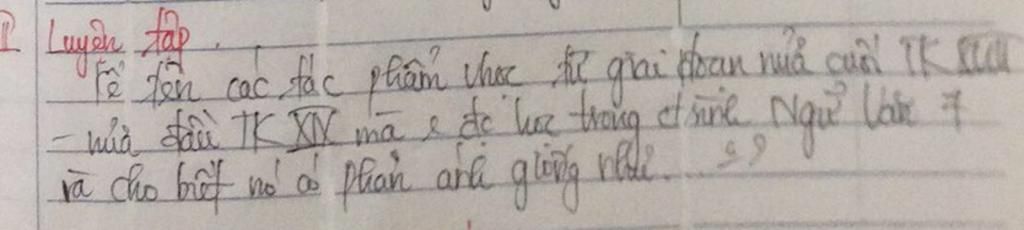 II Luyện tập.
Kể tên các tác phẩm vhọc từ giai đoạn nửa cuối TK XVIII
- nửa đầu TK XIX mà e đc học trong ctrình Ngữ Văn 7
và cho biết nó có phản ánh giống nhau...